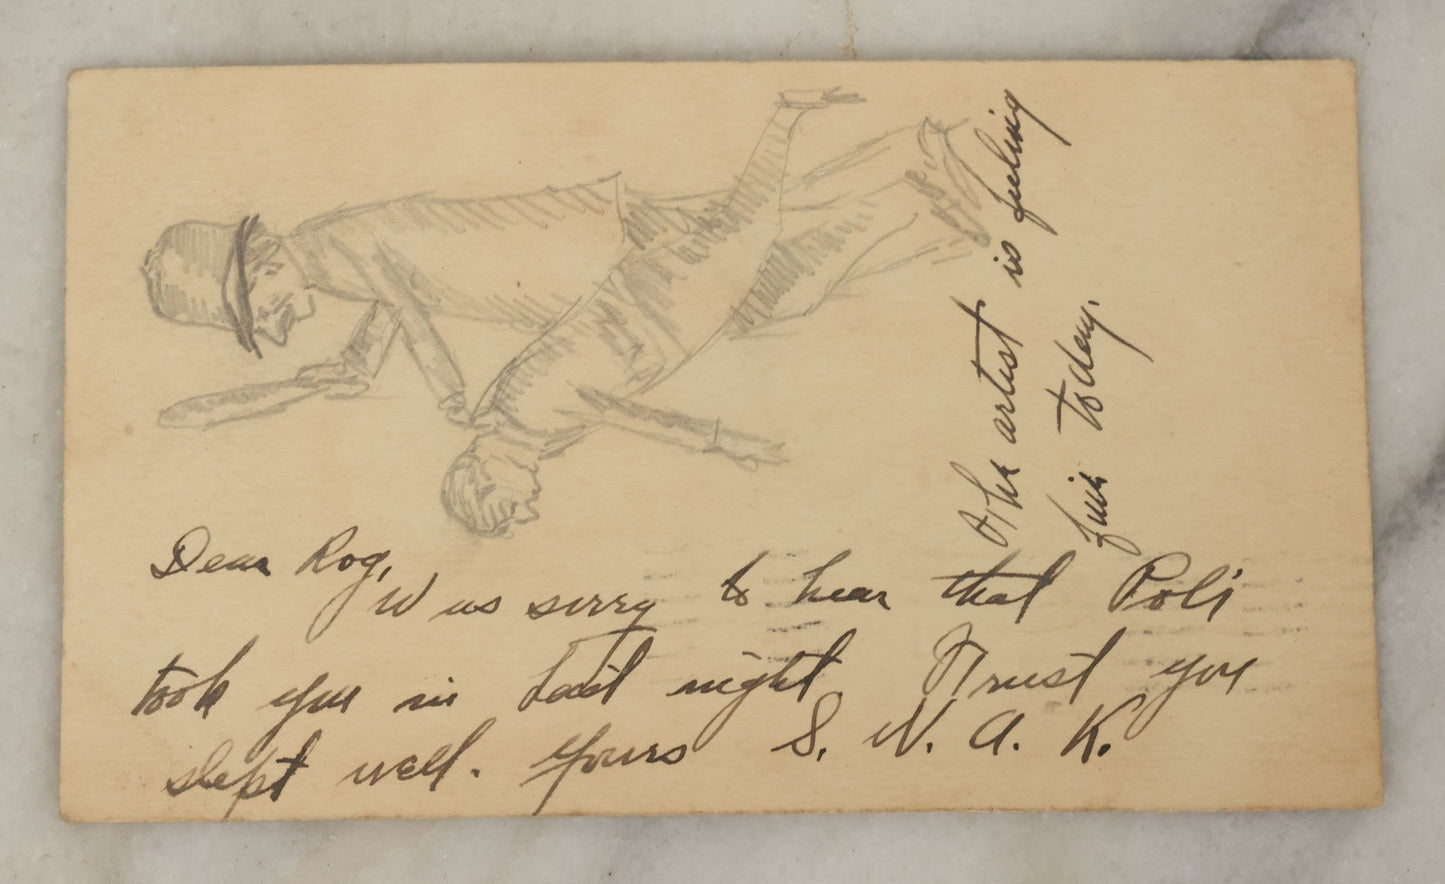 Dear Rog,
Was sorry to hear that Poli
took you in last night. Trust you
slept well. Yours S. N. A. K.
The artist is feeling
fine today.